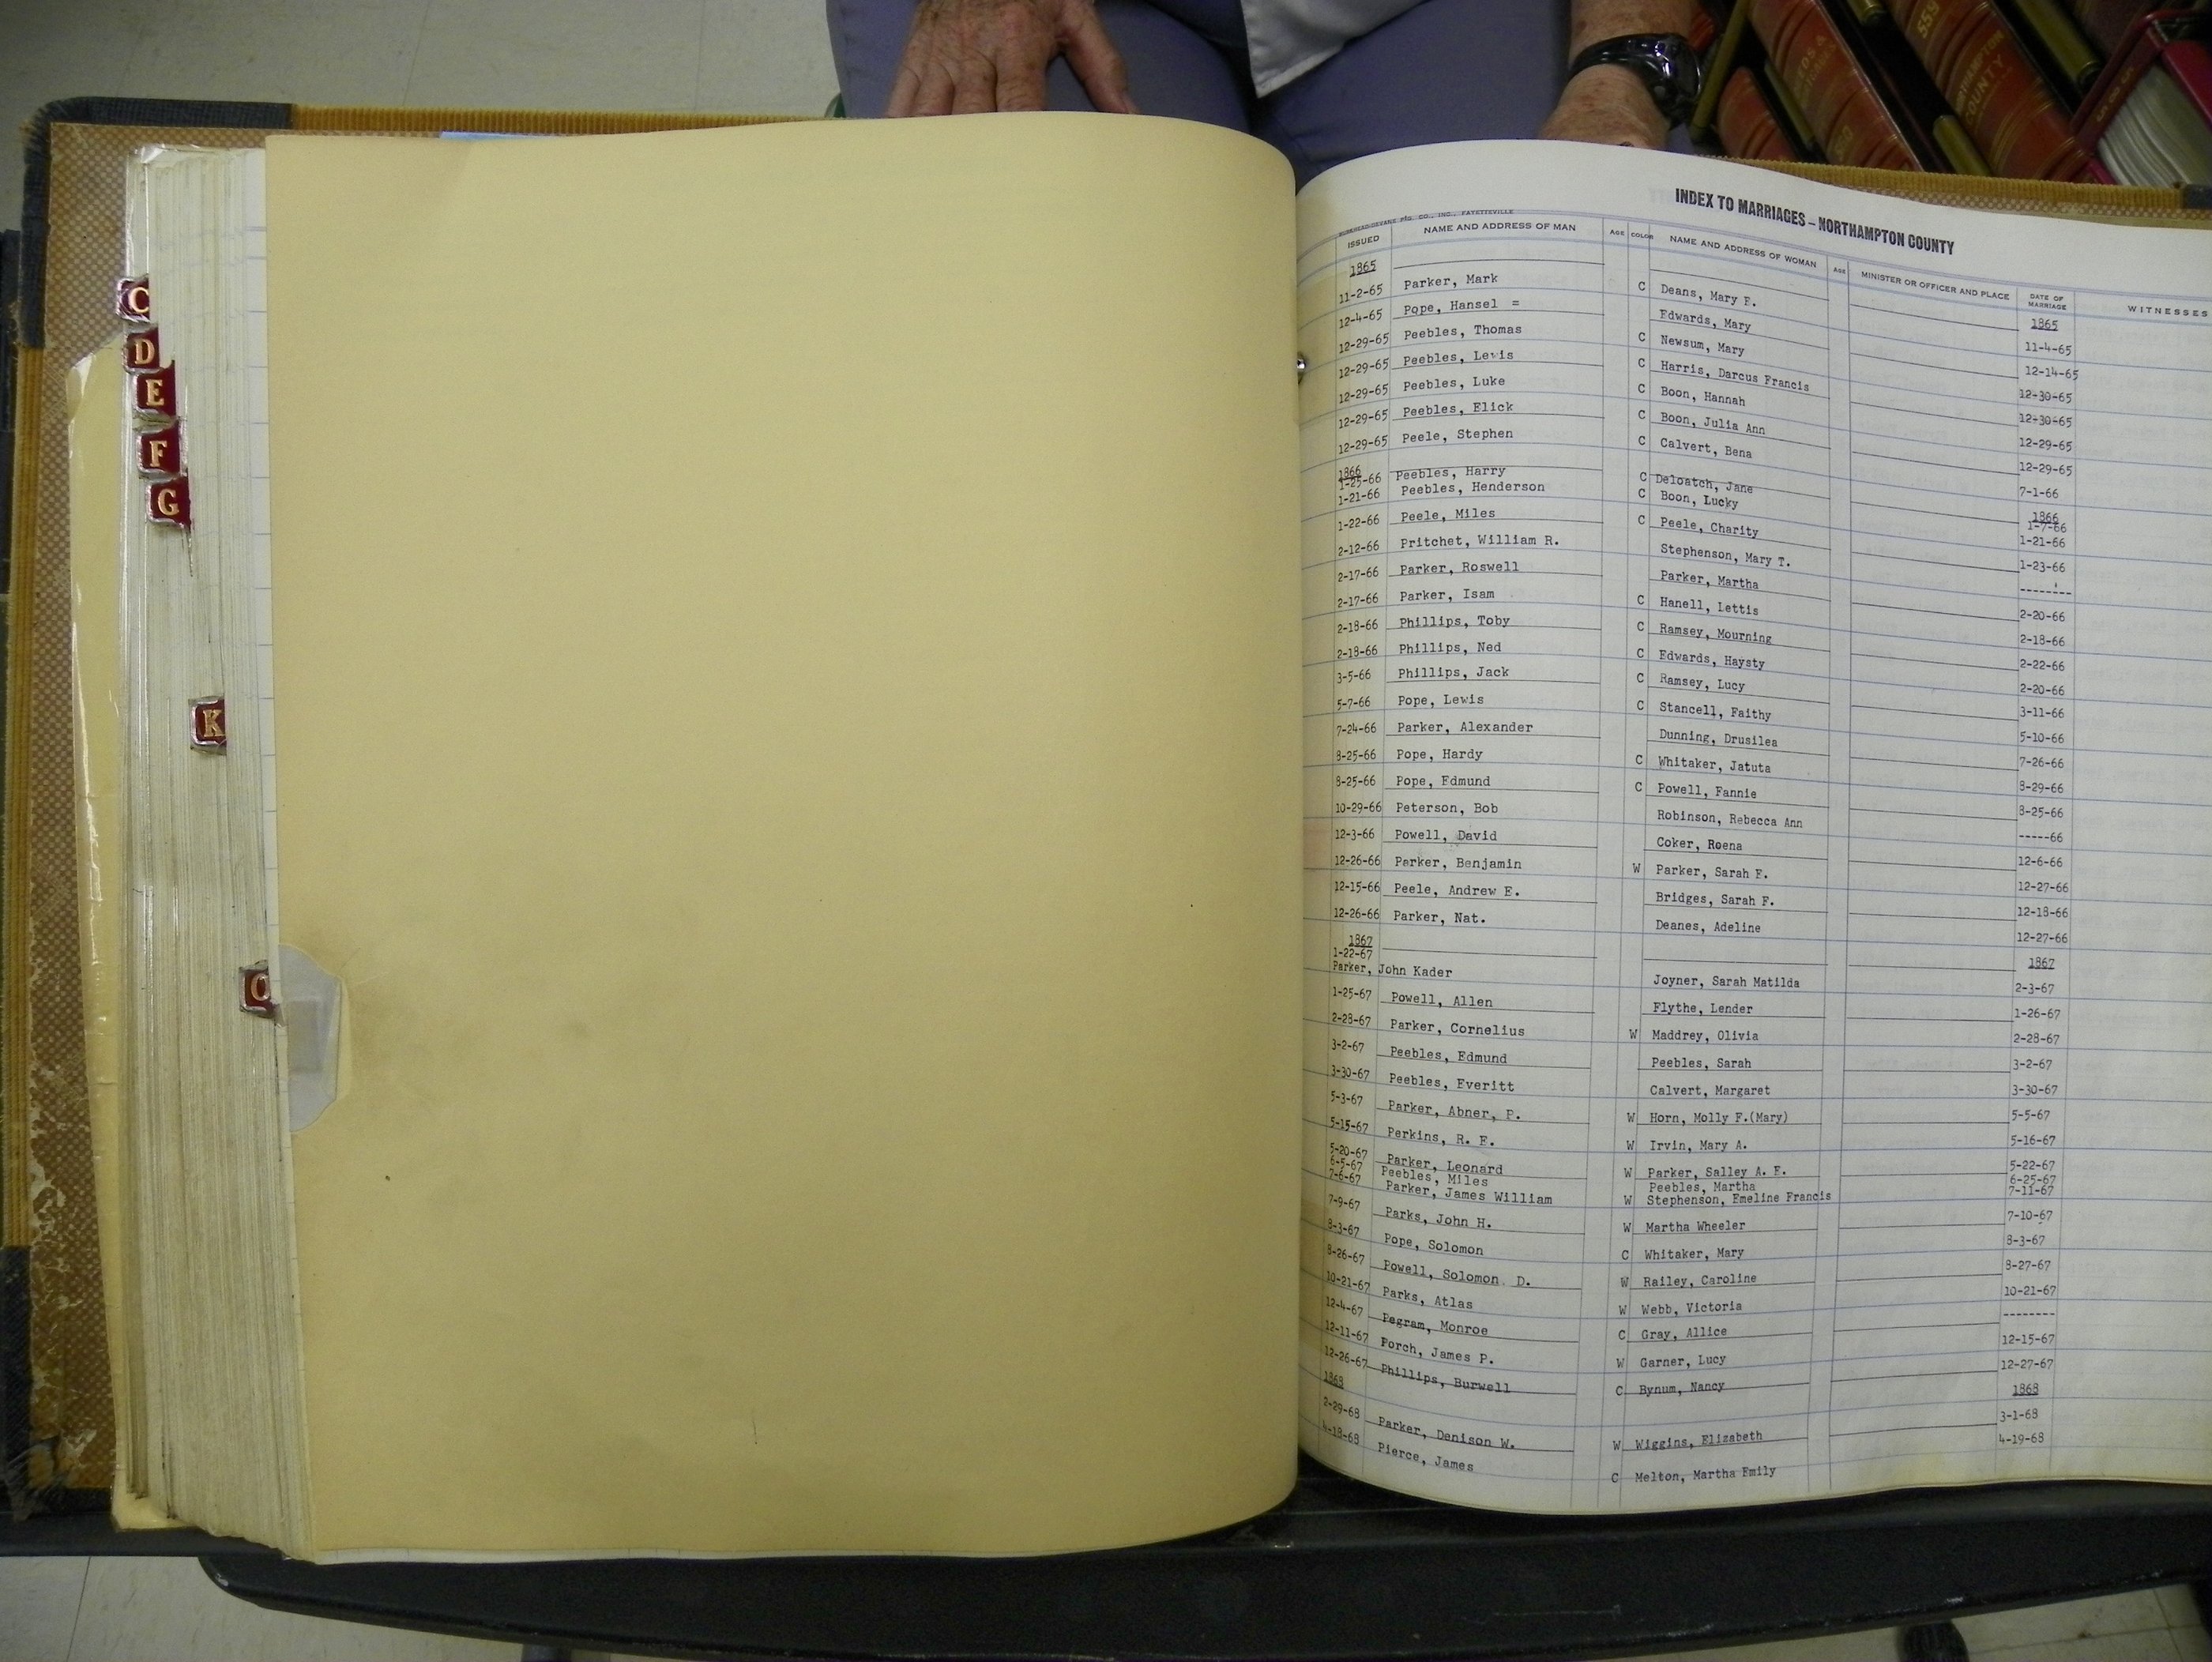 C
D
E
F
G
K
O
559
NORTHAMPTON
COUNTY
558
INDEX TO MARRIAGES – NORTHAMPTON COUNTY
CO., INC., FAYETTEVILLE
ISSUED NAME AND ADDRESS OF MAN AGE COLOR NAME AND ADDRESS OF WOMAN AGE MINISTER OR OFFICER AND PLACE DATE OF MARRIAGE WITNESSES
1865 1865
11-2-65 Parker, Mark C Deans, Mary F. 11-4-65
12-4-65 Pope, Hansel = Edwards, Mary 12-14-65
12-29-65 Peebles, Thomas C Newsum, Mary 12-30-65
12-29-65 Peebles, Levis C Harris, Darcus Francis 12-30-65
12-29-65 Peebles, Luke C Boon, Hannah 12-29-65
12-29-65 Peebles, Elick C Boon, Julia Ann 12-29-65
12-29-65 Peele, Stephen C Calvert, Bena 7-1-66
1866 1866
1-25-66 Peebles, Harry C Deloatch, Jane 1-7-66
1-21-66 Peebles, Henderson C Boon, Lucky 1-21-66
1-22-66 Peele, Miles C Peele, Charity 1-23-66
2-12-66 Pritchet, William R. Stephenson, Mary T. --------
2-17-66 Parker, Roswell Parker, Martha 2-20-66
2-17-66 Parker, Isam C Hanell, Lettis 2-18-66
2-18-66 Phillips, Toby C Ramsey, Mourning 2-22-66
2-18-66 Phillips, Ned C Edwards, Haysty 2-20-66
3-5-66 Phillips, Jack C Ramsey, Lucy 3-11-66
5-7-66 Pope, Lewis C Stancell, Faithy 5-10-66
7-24-66 Parker, Alexander Dunning, Drusilea 7-26-66
8-25-66 Pope, Hardy C Whitaker, Jatuta 8-29-66
8-25-66 Pope, Edmund C Powell, Fannie 8-25-66
10-29-66 Peterson, Bob Robinson, Rebecca Ann -----66
12-3-66 Powell, David Coker, Roena 12-6-66
12-26-66 Parker, Benjamin W Parker, Sarah F. 12-27-66
12-15-66 Peele, Andrew E. Bridges, Sarah F. 12-18-66
12-26-66 Parker, Nat. Deanes, Adeline 12-27-66
1867 1867
1-22-67
Parker, John Kader Joyner, Sarah Matilda 2-3-67
1-25-67 Powell, Allen Flythe, Lender 1-26-67
2-28-67 Parker, Cornelius W Maddrey, Olivia 2-28-67
3-2-67 Peebles, Edmund Peebles, Sarah 3-2-67
3-30-67 Peebles, Everitt Calvert, Margaret 3-30-67
5-3-67 Parker, Abner, P. W Horn, Molly F.(Mary) 5-5-67
5-15-67 Perkins, R. F. W Irvin, Mary A. 5-16-67
5-20-67 Parker, Leonard W Parker, Salley A. E. 5-22-67
6-5-67 Peebles, Miles Peebles, Martha 6-25-67
7-6-67 Parker, James William W Stephenson, Emeline Francis 7-11-67
7-9-67 Parks, John H. W Martha Wheeler 7-10-67
8-3-67 Pope, Solomon C Whitaker, Mary 8-3-67
8-26-67 Powell, Solomon D. W Railey, Caroline 8-27-67
10-21-67 Parks, Atlas W Webb, Victoria 10-21-67
12-4-67 Pegram, Monroe C Gray, Allice --------
12-11-67 Porch, James P. W Garner, Lucy 12-15-67
12-26-67 Phillips, Burwell C Bynum, Nancy 12-27-67
1868 1868
2-29-68 Parker, Denison W. W Wiggins, Elizabeth 3-1-68
4-18-68 Pierce, James C Melton, Martha Emily 4-19-68